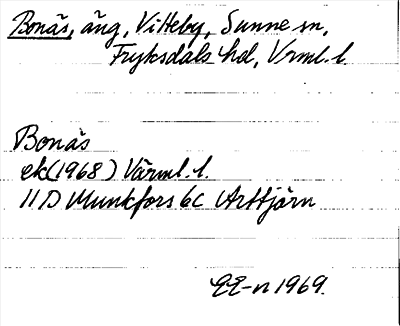 Bonäs, äng, Vitteby, Sunne sn,
Fryksdals hd, Vrml. l.
Bonäs
ek(1968) Värml. l.
11D Munkfors 6c Arttjärn
EE-n 1969.